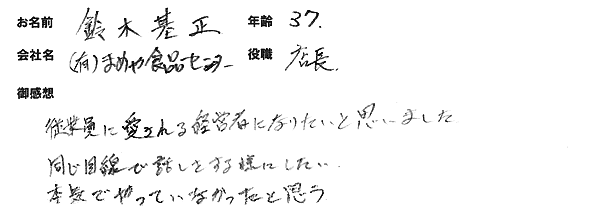 お名前 鈴木基正 年齢 37.
会社名 (有)まめや食品センター 役職 店長.
御感想
従業員に愛される経営者になりたいと思いました
同じ目線で話しをする様にしたい.
本気でやっていなかったと思う